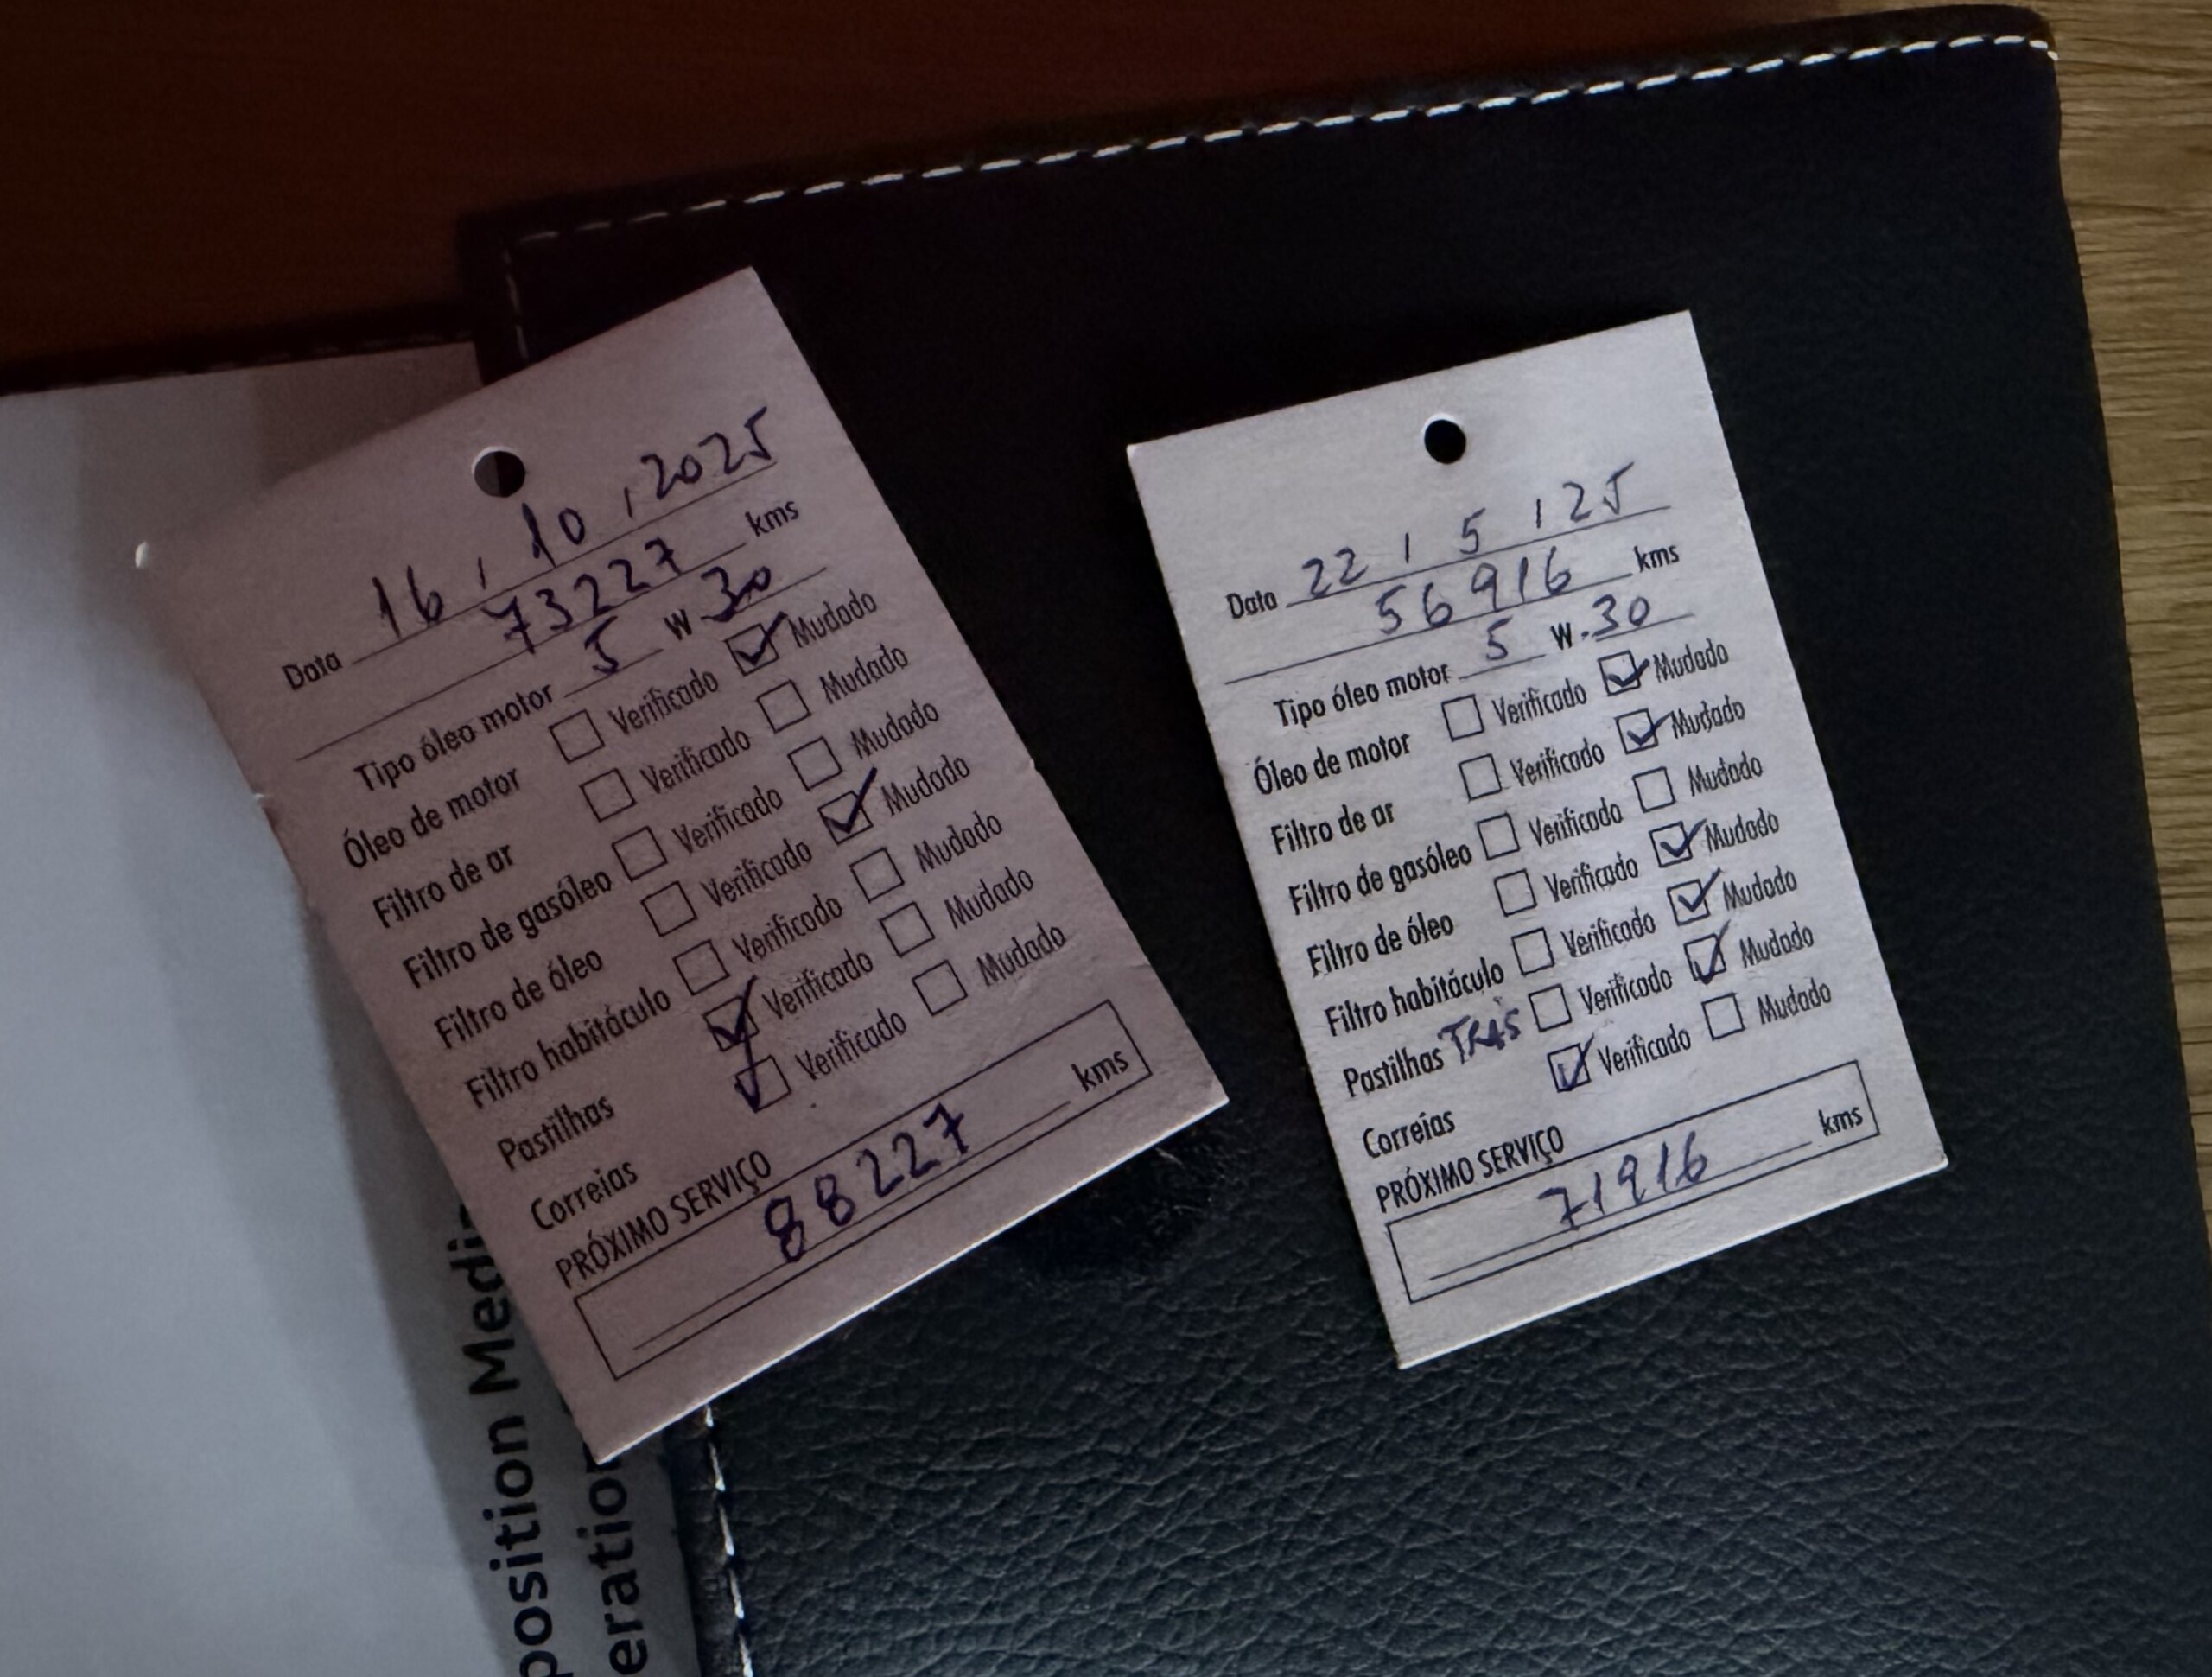 16 / 10 / 2025
Data
73227 kms
Tipo óleo motor 5 W-30
Óleo de motor Verificado Mudado
Filtro de ar Verificado Mudado
Filtro de gasóleo Verificado Mudado
Filtro de óleo Verificado Mudado
Filtro habitáculo Verificado Mudado
Pastilhas Verificado Mudado
Correias Verificado Mudado
PRÓXIMO SERVIÇO
88227 kms
Data 22 / 5 / 25
56916 kms
Tipo óleo motor 5 W-30
Óleo de motor Verificado Mudado
Filtro de ar Verificado Mudado
Filtro de gasóleo Verificado Mudado
Filtro de óleo Verificado Mudado
Filtro habitáculo Verificado Mudado
Pastilhas TRAS Verificado Mudado
Correias Verificado Mudado
PRÓXIMO SERVIÇO
71916 kms